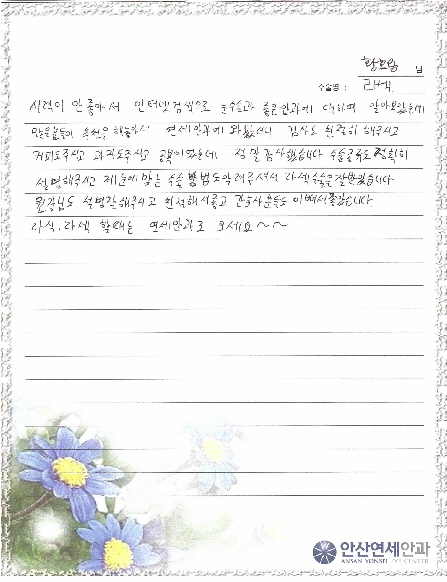 황보람 님
수술명 : 라섹
시력이 안좋아서 인터넷검색으로 눈수술과 좋은안과에 대하여 알아보았는데
많은분들이 추천을 해놓아서 연세안과에 와봤는데 검사도 친절히 해주시고
커피도주시고 과자도주시고 정말감사했습니다 수술종류도 정확히
설명해주시고 제눈에 맞는 수술 방법도알려주셔서 라섹수술을잘받았습니다
원장님도 설명잘해주시고 친절해서좋고 간호사분들도 이뻐서좋았습니다
라식.라섹 할때는 연세안과로 오세요~~
안산연세안과
ANSAN YONSEI EYE CENTER